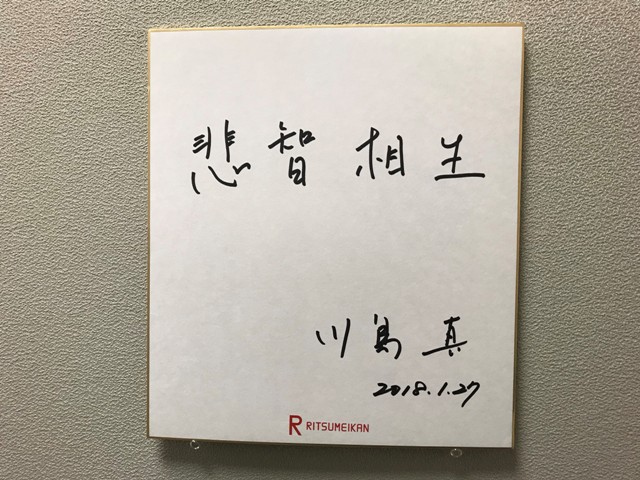 悲智相生
川島真
2018.1.27
R RITSUMEIKAN